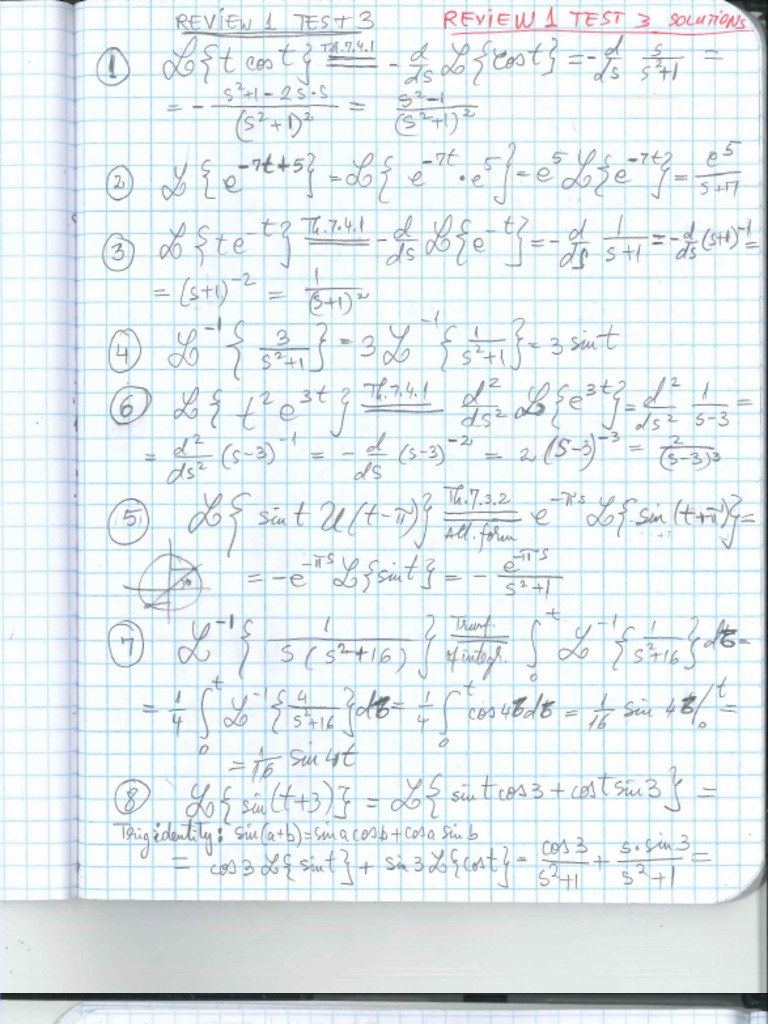 REVIEW 1 TEST 3 REVIEW 1 TEST 3 SOLUTIONS
① ℒ{t cos t} =(Th.7.4.1)= -d/ds ℒ{cos t} = -d/ds s/(s²+1) =
= -(s²+1-2s·s)/(s²+1)² = (s²-1)/(s²+1)²
② ℒ{e^(-7t+5)} = ℒ{e^(-7t)·e^5} = e^5 ℒ{e^(-7t)} = e^5/(s+7)
③ ℒ{te^(-t)} =(Th.7.4.1)= -d/ds ℒ{e^(-t)} = -d/ds 1/(s+1) = -d/ds (s+1)^(-1) =
= (s+1)^(-2) = 1/(s+1)²
④ ℒ^(-1){3/(s²+1)} = 3ℒ^(-1){1/(s²+1)} = 3 sin t
⑥ ℒ{t²e^(3t)} =(Th.7.4.1)= d²/ds² ℒ{e^(3t)} = d²/ds² 1/(s-3) =
= d²/ds² (s-3)^(-1) = -d/ds (s-3)^(-2) = 2(s-3)^(-3) = 2/(s-3)³
⑤ ℒ{sin t U(t-π)} =(Th.7.3.2 Alt. form)= e^(-πs) ℒ{sin(t+π)} =
= -e^(-πs) ℒ{sin t} = -e^(-πs)/(s²+1)
⑦ ℒ^(-1){1/(s(s²+16))} =(Tranf. of integr.)= ∫₀^t ℒ^(-1){1/(s²+16)}dτ =
= 1/4 ∫₀^t ℒ^(-1){4/(s²+16)}dτ = 1/4 ∫₀^t cos 4τ dτ = 1/16 sin 4τ/₀^t =
= 1/16 sin 4t
⑧ ℒ{sin(t+3)} = ℒ{sin t cos 3 + cos t sin 3} =
Trig identity: sin(a+b)=sin a cos b + cos a sin b
= cos 3 ℒ{sin t} + sin 3 ℒ{cos t} = cos 3/(s²+1) + s·sin 3/(s²+1) =